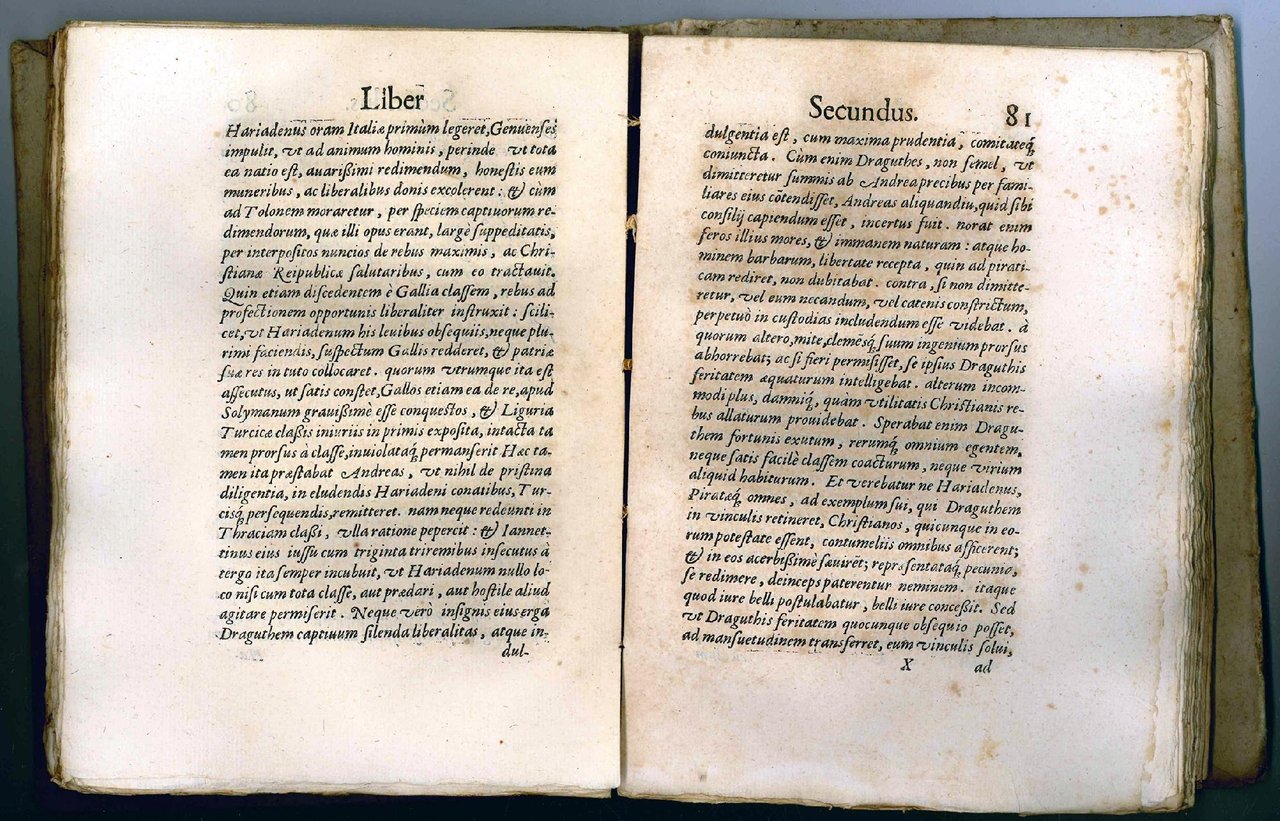 Liber
Hariadenus oram Italiæ primùm legeret, Genuenses
impulit, vt ad animum hominis, perinde vt tota
ea natio est, auarißimi redimendum, honestis eum
muneribus, ac liberalibus donis excolerent: & cùm
ad Tolonem moraretur, per speciem captiuorum re-
dimendorum, quæ illi opus erant, largè suppeditatis,
per interpositos nuncios de rebus maximis, ac Chri-
stianæ Reipublicæ salutaribus, cum eo tractauit.
Quin etiam discedentem è Gallia classem, rebus ad
profectionem opportunis liberaliter instruxit: scili-
cet, vt Hariadenum his leuibus obsequiis, neque plu-
rimi faciendis, suspectum Gallis redderet, & patriæ
suæ res in tuto collocaret. quorum vtrumque ita est
assecutus, vt satis constet, Gallos etiam ea de re, apud
Solymanum grauißimè esse conquestos, & Liguria
Turcicæ claßis iniuriis in primis exposita, intacta ta
men prorsus à classe, inuiolataq́; permanserit Hæc ta-
men ita præstabat Andreas, vt nihil de pristina
diligentia, in eludendis Hariadeni conatibus, Tur-
cisq́; persequendis, remitteret. nam neque redeunti in
Thraciam claßi, vlla ratione pepercit: & Iannet-
tinus eius iussu cum triginta triremibus insecutus à
tergo ita semper incubuit, vt Hariadenum nullo lo-
co nisi cum tota classe, aut prædari, aut hostile aliud
agitare permiserit. Neque verò insignis eius erga
Draguthem captiuum silenda liberalitas, atque in-
dul-
Secundus. 81
dulgentia est, cum maxima prudentia, comitateq́;
coniuncta. Cùm enim Draguthes, non semel, vt
dimitteretur summis ab Andrea precibus per fami-
liares eius cõtendisset, Andreas aliquandiu, quid sibi
consilij capiendum esset, incertus fuit. norat enim
feros illius mores, & immanem naturam: atque ho-
minem barbarum, libertate recepta, quin ad pirati-
cam rediret, non dubitabat. contra, si non dimitte-
retur, vel eum necandum, vel catenis constrictum,
perpetuò in custodias includendum esse videbat. à
quorum altero, mite, clemẽsq́; suum ingenium prorsus
abhorrebat; ac si fieri permisisset, se ipsius Draguthis
feritatem æquaturum intelligebat. alterum incom-
modi plus, damniq́;, quàm vtilitatis Christianis re-
bus allaturum prouidebat. Sperabat enim Dragu-
them fortunis exutum, rerumq́; omnium egentem,
neque satis facilè classem coacturum, neque virium
aliquid habiturum. Et verebatur ne Hariadenus,
Piratæq́; omnes, ad exemplum sui, qui Draguthem
in vinculis retineret, Christianos, quicunque in eo-
rum potestate essent, contumeliis omnibus afficerent;
& in eos acerbißimè sæuiret; repræsentataq́; pecunia,
se redimere, deinceps paterentur neminem. itaque
quod iure belli postulabatur, belli iure conceßit. Sed
vt Draguthis feritatem quocunque obsequio posset,
ad mansuetudinem transferret, eum vinculis solui,
X ad